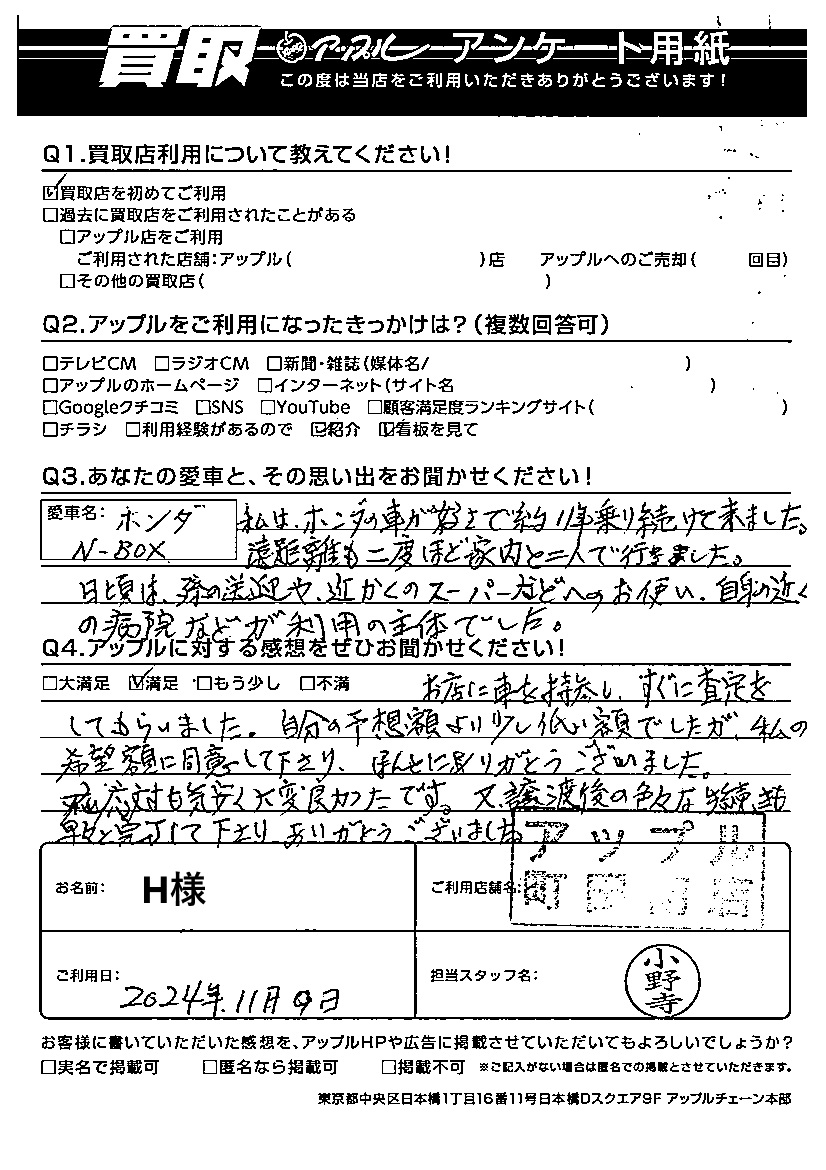 買取 アップル アンケート用紙
この度は当店をご利用いただきありがとうございます！
Q1.買取店利用について教えてください！
☑買取店を初めてご利用
□過去に買取店をご利用されたことがある
□アップル店をご利用
ご利用された店舗：アップル（ ）店 アップルへのご売却（ 回目）
□その他の買取店（ ）
Q2.アップルをご利用になったきっかけは？（複数回答可）
□テレビCM □ラジオCM □新聞・雑誌（媒体名/ ）
□アップルのホームページ □インターネット（サイト名 ）
□Googleクチコミ □SNS □YouTube □顧客満足度ランキングサイト（ ）
□チラシ □利用経験があるので ☑紹介 ☑看板を見て
Q3.あなたの愛車と、その思い出をお聞かせください！
愛車名：ホンダ
N-BOX
私は、ホンダの車が好きで約11年乗り続けて来ました。
遠距離も二度ほど家内と二人で行きました。
日頃は、孫の送迎や、近かくのスーパーなどへのお使い、自宅の近く
の病院などが利用の主体でした。
Q4.アップルに対する感想をぜひお聞かせください！
□大満足 ☑満足 □もう少し □不満
お店に車を持参し、すぐに査定を
してもらいました。自分の予想額より少し低い額でしたが、私の
希望額に同意して下さり、ほんとにありがとうございました。
応対も気安く大変良かったです。又、譲渡後の色々な手続きも
早々と完了して下さり、ありがとうございました
お名前： H様
ご利用店舗名：
アップル
町田店
ご利用日： 2024年11月9日
担当スタッフ名： 小野寺
お客様に書いていただいた感想を、アップルHPや広告に掲載させていただいてもよろしいでしょうか？
□実名で掲載可 □匿名なら掲載可 □掲載不可 ※ご記入がない場合は匿名での掲載とさせていただきます。
東京都中央区日本橋1丁目16番11号日本橋Dスクエア9F アップルチェーン本部